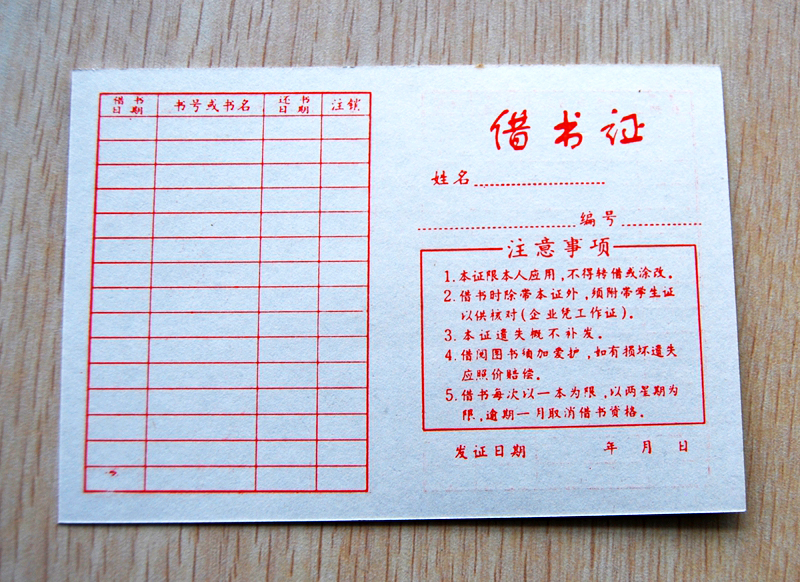 借书日期 书号或书名 还书日期 注销
借书证
姓名
编号
注意事项
1. 本证限本人应用,不得转借或涂改。
2. 借书时除带本证外,须附带学生证
以供核对(企业凭工作证)。
3. 本证遗失概不补发。
4. 借阅图书须加爱护,如有损坏遗失
应照价赔偿。
5. 借书每次以一本为限,以两星期为
限,逾期一月取消借书资格。
发证日期 年 月 日